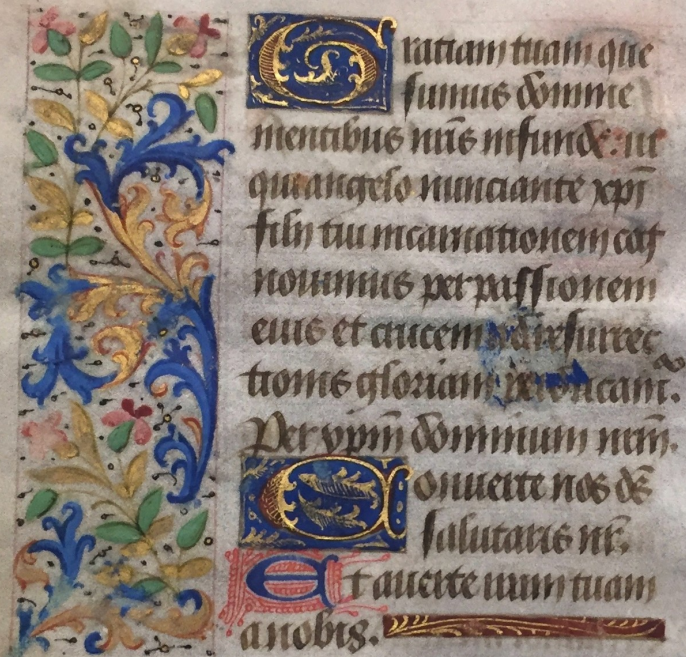 Gratiam tuam que
sumus domine
mentibus nr̃is infunde. ut
qui angelo nunciante xpĩ
filii tui incarnationem cog
nouimus per passionem
eius et crucem ad resurrec
tionis gloriam perducam̃.
Per xpm̃ dominum nr̃m.
Conuerte nos de᷒
salutaris nr̃.
Et auerte iram tuam
a nobis.